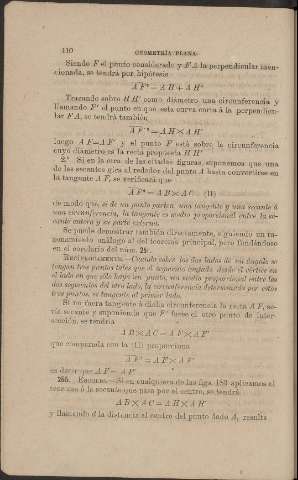 110 GEOMETRÍA PLANA.
Siendo F el punto considerado y FA la perpendicular men-
cionada, se tendrá por hipótesis
AF² = AH × AH'
Trazando sobre HH' como diámetro una circunferencia y
llamando F' el punto en que esta curva corta á la perpendicu-
lar FA, se tendrá también
AF'² = AH × AH'
luego AF=AF' y el punto F está sobre la circunferencia
cuyo diámetro es la recta propuesta HH'
2.° Si en la otra de las citadas figuras, suponemos que una
de las secantes gira al rededor del punto A hasta convertirse en
la tangente AF, se verificará que
AF² = AB × AC (11)
de modo que, si de un punto parten una tangente y una secante á
una circunferencia, la tangente es media proporcional entre la se-
cante entera y su parte externa.
Se puede demostrar también directamente, siguiendo un ra-
zonamiento análogo al del teorema principal, pero fundándose
en el corolario del núm.
RECÍPROCAMENTE.—Cuando sobre los dos lados de un ángulo se
tengan tres puntos tales que el segmento contado desde el vértice en
el lado en que sólo haya un punto, sea media proporcional entre los
dos segmentos del otro lado, la circunferencia determinada por estos
tres puntos, es tangente al primer lado.
Si no fuera tangente á dicha circunferencia la recta AF, se-
ría secante y suponiendo que F' fuese el otro punto de inter-
sección, se tendría
AB × AC = AF × AF'
que comparada con la (11) proporciona
AF² = AF × AF'
es decir que AF = AF'
255. ESCOLIO.—Si en cualquiera de las figs. 183 aplicamos el
teorema á la secante que pasa por el centro, se tendrá
AB × AC = AH × AH'
y llamando d la distancia al centro del punto dado A, resulta